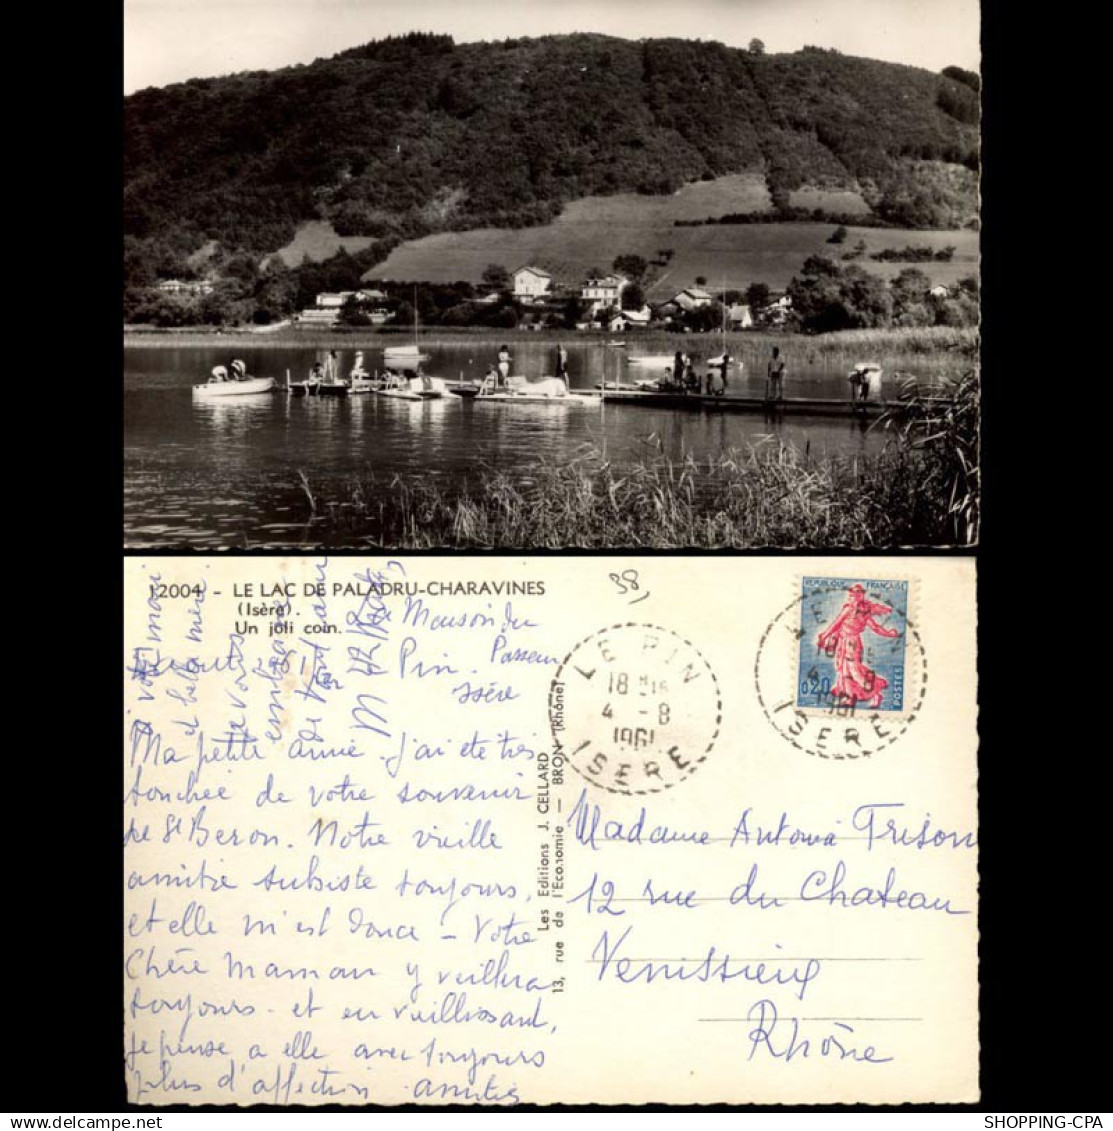 12004 - LE LAC DE PALADRU-CHARAVINES
(Isère).
Un joli coin.
38,
REPUBLIQUE FRANÇAISE
0,20
POSTES
LE PIN
18 H15
4 - 8
1961
ISERE
LE PIN
4 8
1961
ISERE
Maison du
Pin. Passeur
Isère
août 61
Ma petite amie. j'ai été très
touchée de votre souvenir
de St Beron. Notre vieille
amitié subsiste toujours,
et elle m'est douce - Votre
Chère Maman y veillera
toujours - et en vieillissant,
je pense a elle avec toujours
plus d'affection. amitiés
a votre mari
et belle mère.
je vous
embrasse
Les Editions J. CELLARD
13, rue de l'Economie — BRON (Rhône)
Madame Antonia Frison
12 rue du Chateau
Venissieux
Rhône
SHOPPING-CPA
delcampe.net